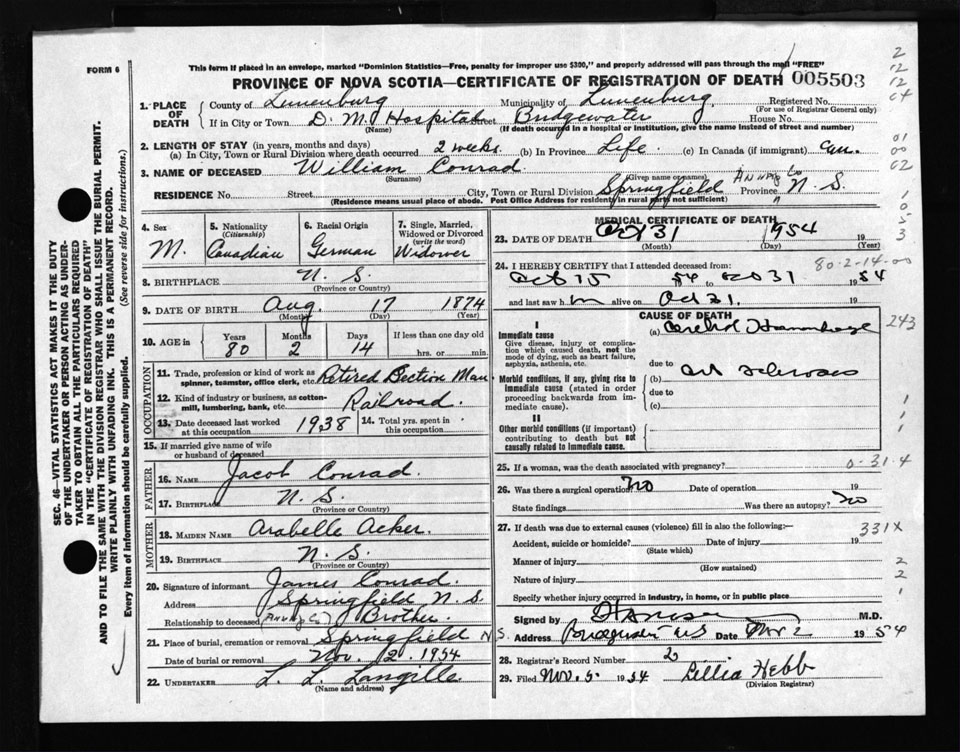 FORM 6
This form if placed in an envelope, marked "Dominion Statistics—Free, penalty for improper use $300," and properly addressed will pass through the mail "FREE"
PROVINCE OF NOVA SCOTIA—CERTIFICATE OF REGISTRATION OF DEATH 005503
1. PLACE OF DEATH
County of Lunenburg Municipality of Lunenburg Registered No.
(For use of Registrar General only)
If in City or Town D. M. Hospital Street Bridgewater House No.
(Name) (If death occurred in a hospital or institution, give the name instead of street and number)
2. LENGTH OF STAY (in years, months and days)
(a) In City, Town or Rural Division where death occurred 2 weeks. (b) In Province Life. (c) In Canada (if immigrant)
3. NAME OF DECEASED William Conrad.
(Surname) (Given name or names)
RESIDENCE No. Street City, Town or Rural Division Springfield Annap Co Province N. S.
(Residence means usual place of abode. Post Office Address for residents in rural parts not sufficient)
4. Sex M.
5. Nationality (Citizenship) Canadian
6. Racial Origin German
7. Single, Married, Widowed or Divorced (write the word) Widower
8. BIRTHPLACE N. S.
(Province or Country)
9. DATE OF BIRTH Aug. 17 1874
(Month) (Day) (Year)
10. AGE in Years 80 Months 2 Days 14 If less than one day old hrs. or min.
OCCUPATION
11. Trade, profession or kind of work as spinner, teamster, office clerk, etc. Retired Section Man
12. Kind of industry or business, as cotton-mill, lumbering, bank, etc. Railroad.
13. Date deceased last worked at this occupation 1938 14. Total yrs. spent in this occupation
15. If married give name of wife or husband of deceased
FATHER
16. NAME Jacob Conrad.
17. BIRTHPLACE N. S.
(Province or Country)
MOTHER
18. MAIDEN NAME Arabelle Acker.
19. BIRTHPLACE N. S.
(Province or Country)
20. Signature of informant James Conrad.
Address Springfield N. S.
Relationship to deceased (Annap Co) Brother.
21. Place of burial, cremation or removal Springfield N S.
Date of burial or removal Nov. 2. 1954
22. UNDERTAKER L. L. Langille
(Name and address)
MEDICAL CERTIFICATE OF DEATH
23. DATE OF DEATH Oct 31 1954 19
(Month) (Day) (Year)
80-2-14-00
24. I HEREBY CERTIFY that I attended deceased from:
Oct 15 54 to Oct 31 19 54
and last saw h m alive on Oct 31, 19
CAUSE OF DEATH
I
Immediate cause
Give disease, injury or complication which caused death, not the mode of dying, such as heart failure, asphyxia, asthenia, etc.
(a) Cerebral Haemorrhage
due to
Morbid conditions, if any, giving rise to immediate cause (stated in order proceeding backwards from immediate cause).
(b) Art Sclerosis
due to
(c)
II
Other morbid conditions (if important) contributing to death but not causally related to immediate cause.
25. If a woman, was the death associated with pregnancy? 0-31-4
26. Was there a surgical operation? No Date of operation 19
State findings Was there an autopsy? No
27. If death was due to external causes (violence) fill in also the following:— 331X
Accident, suicide or homicide? Date of injury 19
(State which)
Manner of injury
(How sustained)
Nature of injury
Specify whether injury occurred in industry, in home, or in public place
Signed by M.D.
Address Bridgewater NS Date Nov 2 19 54
28. Registrar's Record Number 2
29. Filed Nov. 5. 19 54 Lillia Hebb
(Division Registrar)
2
12
12
04
01
00
02
1
0
5
3
243
1
1
1
2
2
1
SEC. 46—VITAL STATISTICS ACT MAKES IT THE DUTY
OF THE UNDERTAKER OR PERSON ACTING AS UNDER-
TAKER TO OBTAIN ALL THE PARTICULARS REQUIRED
IN THE "CERTIFICATE OF REGISTRATION OF DEATH"
AND TO FILE THE SAME WITH THE DIVISION REGISTRAR WHO SHALL ISSUE THE BURIAL PERMIT.
WRITE PLAINLY WITH UNFADING INK. THIS IS A PERMANENT RECORD.
Every item of information should be carefully supplied. (See reverse side for instructions.)